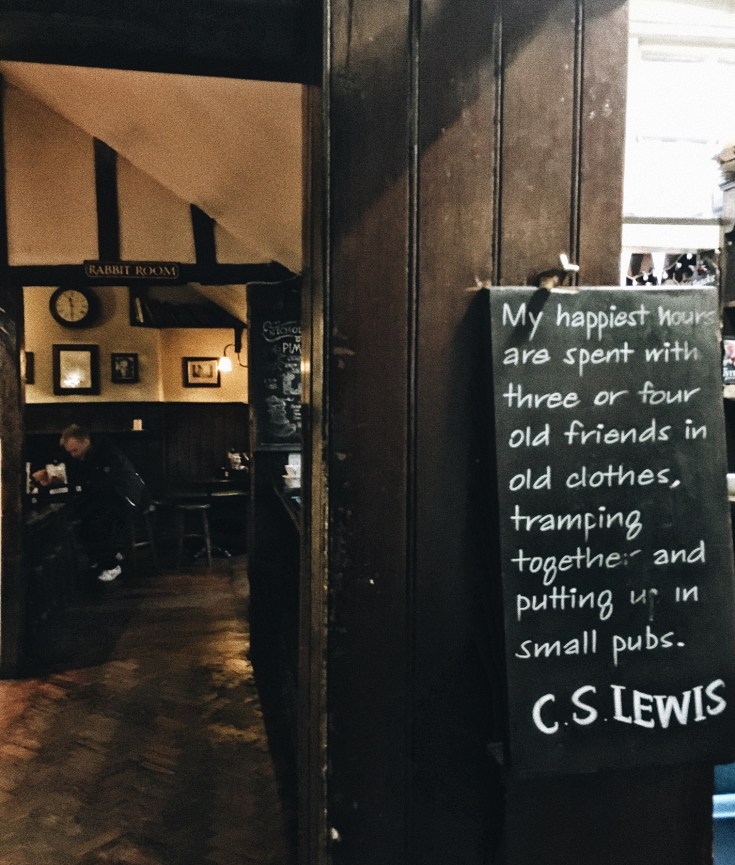 RABBIT ROOM
PIM
My happiest hours
are spent with
three or four
old friends in
old clothes,
tramping
together and
putting up in
small pubs.
C.S. LEWIS